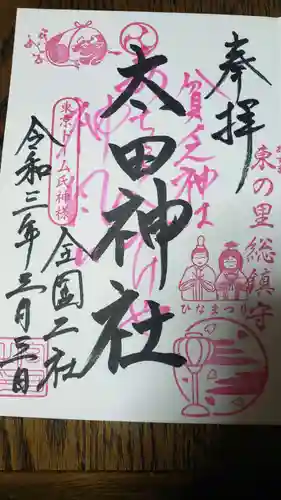 奉拝
東の里総鎮守
貧乏神は
ひなまつり
太田神社
東京ドーム氏神様
全国二社
令和三年三月三日